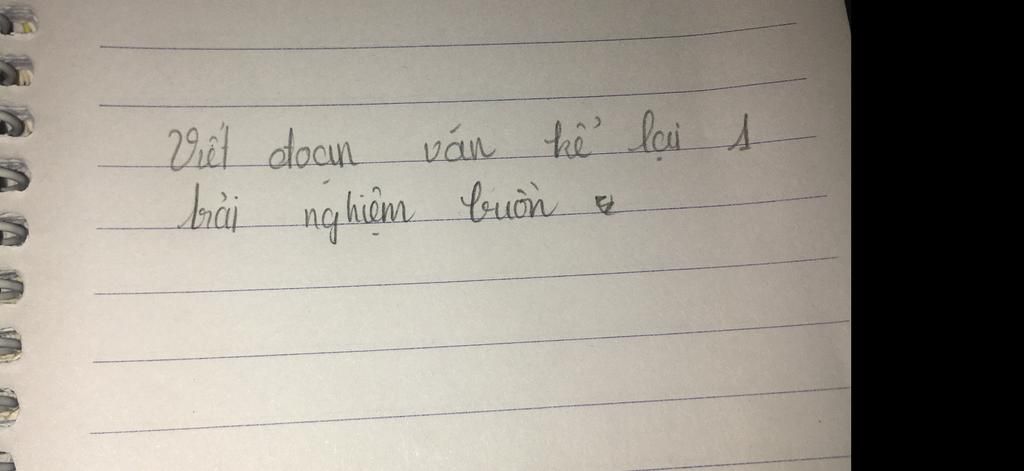 Viết đoạn văn kể lại 1
trải nghiệm buồn